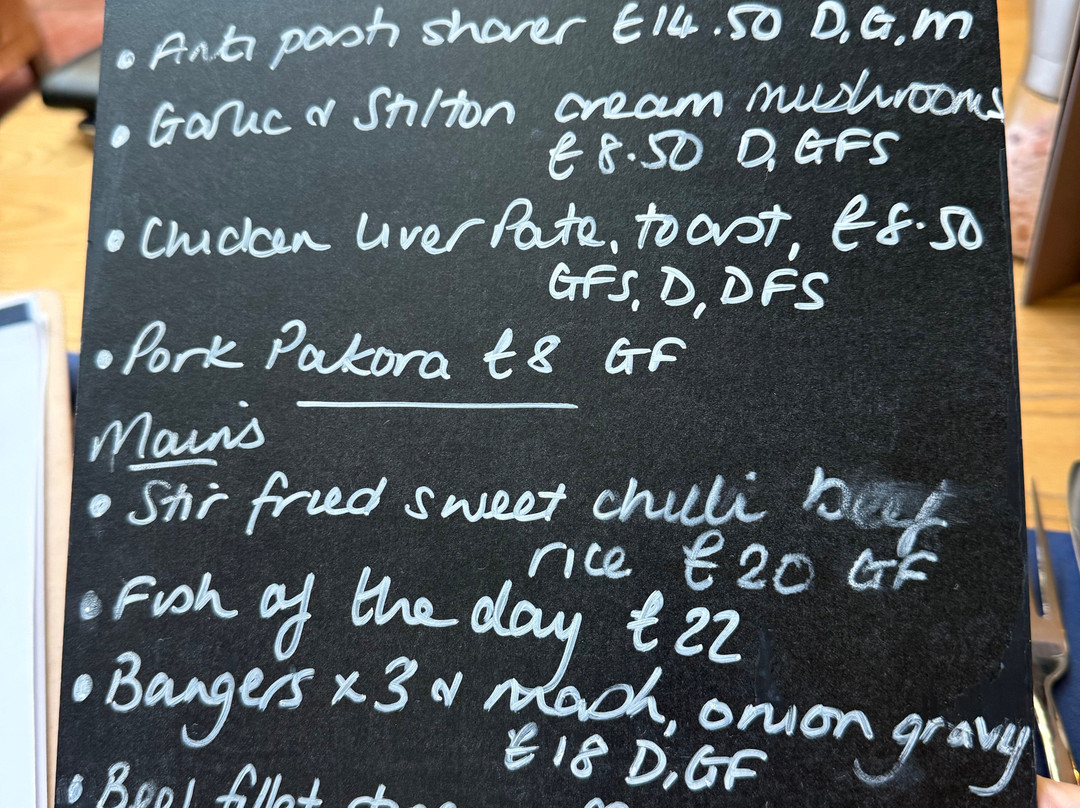 • Anti pasti sharer £14.50 D,G,M
• Garlic & Stilton cream mushrooms
£8.50 D, GFS
• Chicken liver Pate, toast, £8.50
GFS, D, DFS
• Pork Pakora £8 GF
Mains
• Stir fried sweet chilli beef
rice £20 GF
• Fish of the day £22
• Bangers x3 & mash, onion gravy
£18 D,GF
• Beef fillet